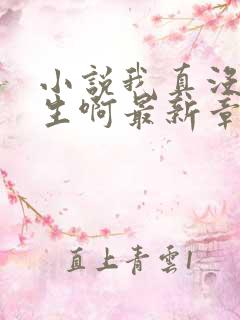 小說我真没
生啊最新章
直上青雲1